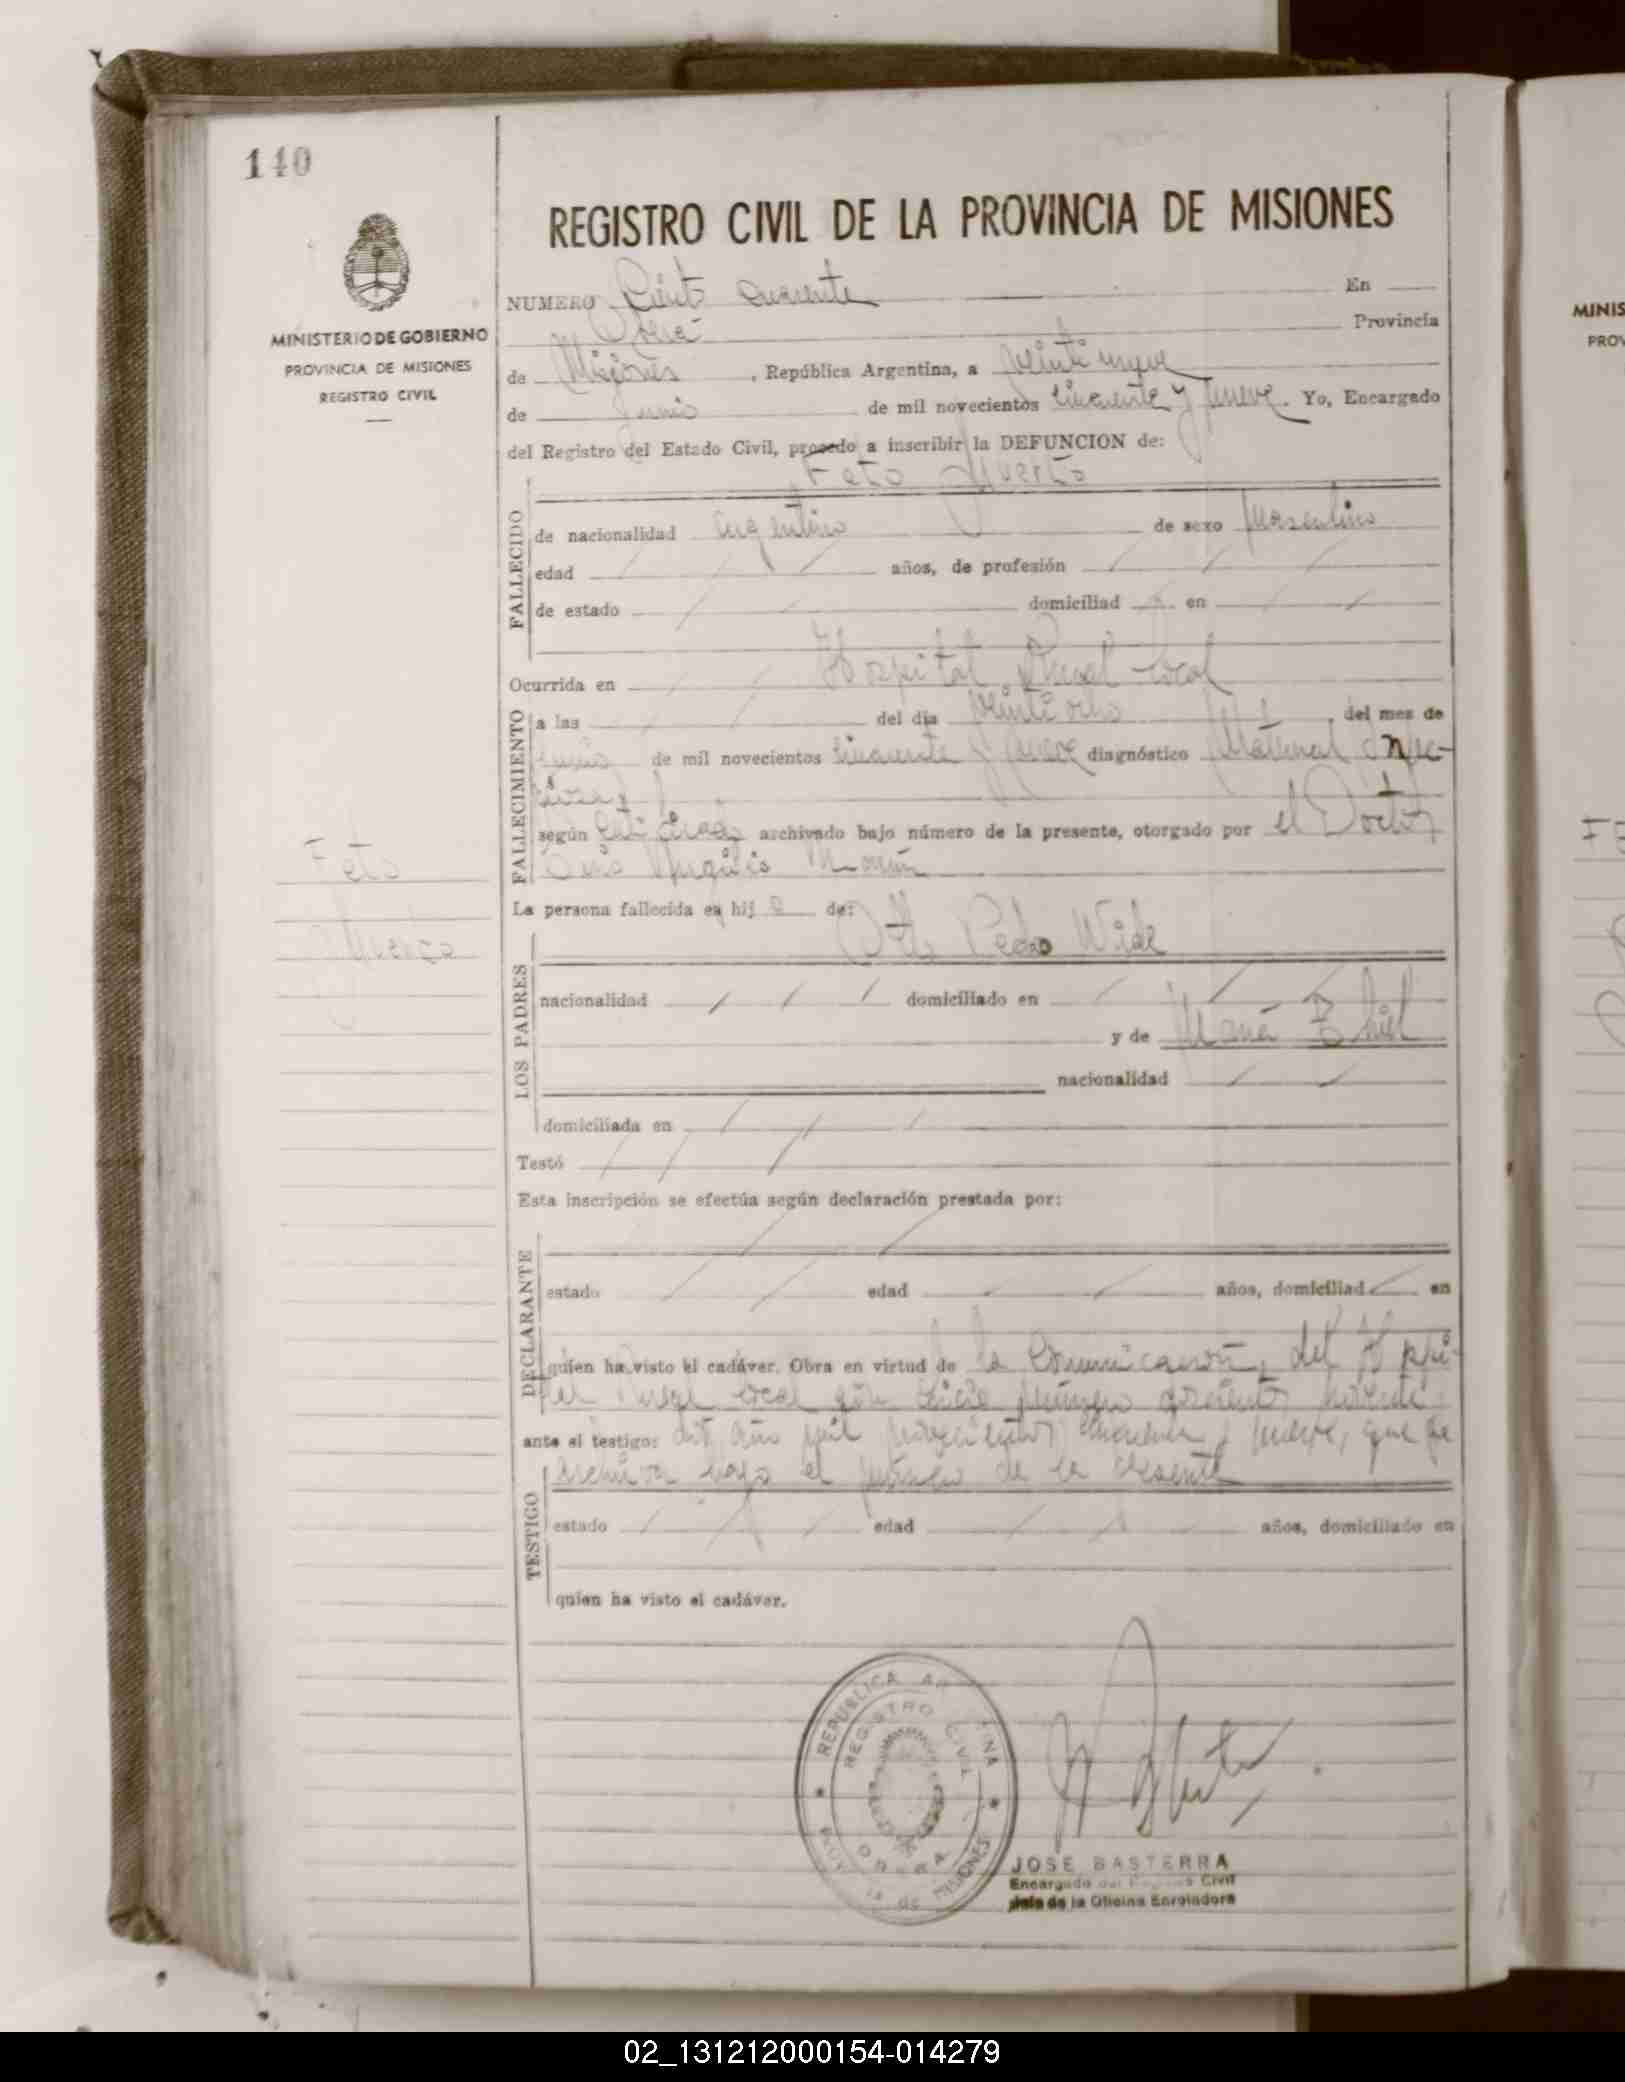 140
MINISTERIO DE GOBIERNO
PROVINCIA DE MISIONES
REGISTRO CIVIL
REGISTRO CIVIL DE LA PROVINCIA DE MISIONES
NUMERO Ciento cuarenta En
Oberá Provincia
de Misiones, República Argentina, a veintinueve
de junio de mil novecientos cincuenta y nueve. Yo, Encargado
del Registro del Estado Civil, procedo a inscribir la DEFUNCION de:
Feto Muerto
FALLECIDO
de nacionalidad argentino de sexo Masculino
edad años, de profesión
de estado domiciliad en
Hospital Rural local
Ocurrida en
FALLECIMIENTO
a las del día veintiocho del mes de
junio de mil novecientos cincuenta y nueve diagnóstico
según certificado archivado bajo número de la presente, otorgado por el Doctor
La persona fallecida es hijo de:
Otto Pedro Wide
LOS PADRES
nacionalidad domiciliado en
y de María Thiel
nacionalidad
domiciliada en
Testó
Esta inscripción se efectúa según declaración prestada por:
DECLARANTE
estado edad años, domiciliad en
quien ha visto el cadáver. Obra en virtud de la comunicación del Hospi-
tal Rural local número
ante el testigo: del año mil novecientos cincuenta y nueve, que se
archiva bajo el número de la presente
TESTIGO
estado edad años, domiciliado en
quien ha visto el cadáver.
Feto
Muerto
REPUBLICA AR TINA
REGISTRO CIVIL
OBERA
MISIONES
JOSE BASTERRA
Encargado del Registro Civil
Jefe de la Oficina Enroladora
MINIS
PROV
FE
02_131212000154-014279